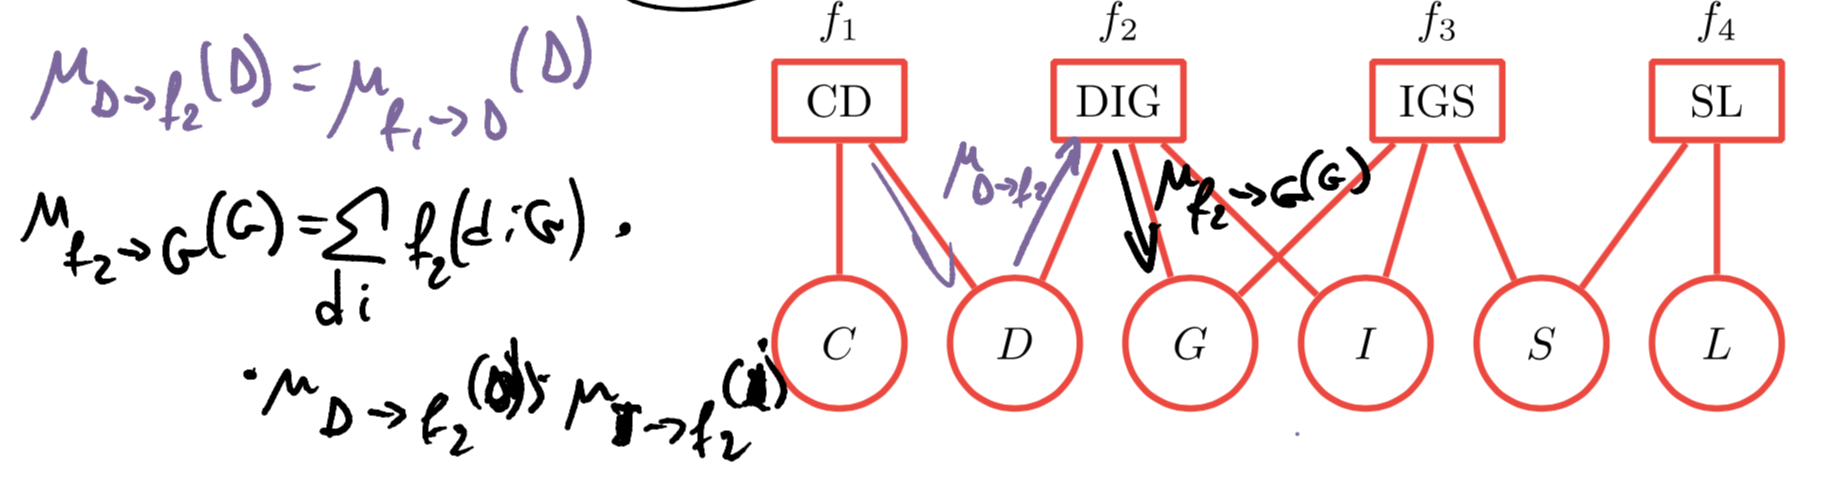 μ_{D→f_2}(D) = μ_{f_1→D}(D)
μ_{f_2→G}(G) = ∑_{d i} f_2(d i G) ·
· μ_{D→f_2}(d) · μ_{I→f_2}(i)
f_1 f_2 f_3 f_4
CD DIG IGS SL
μ_{D→f_2} μ_{f_2→G}(G)
C D G I S L